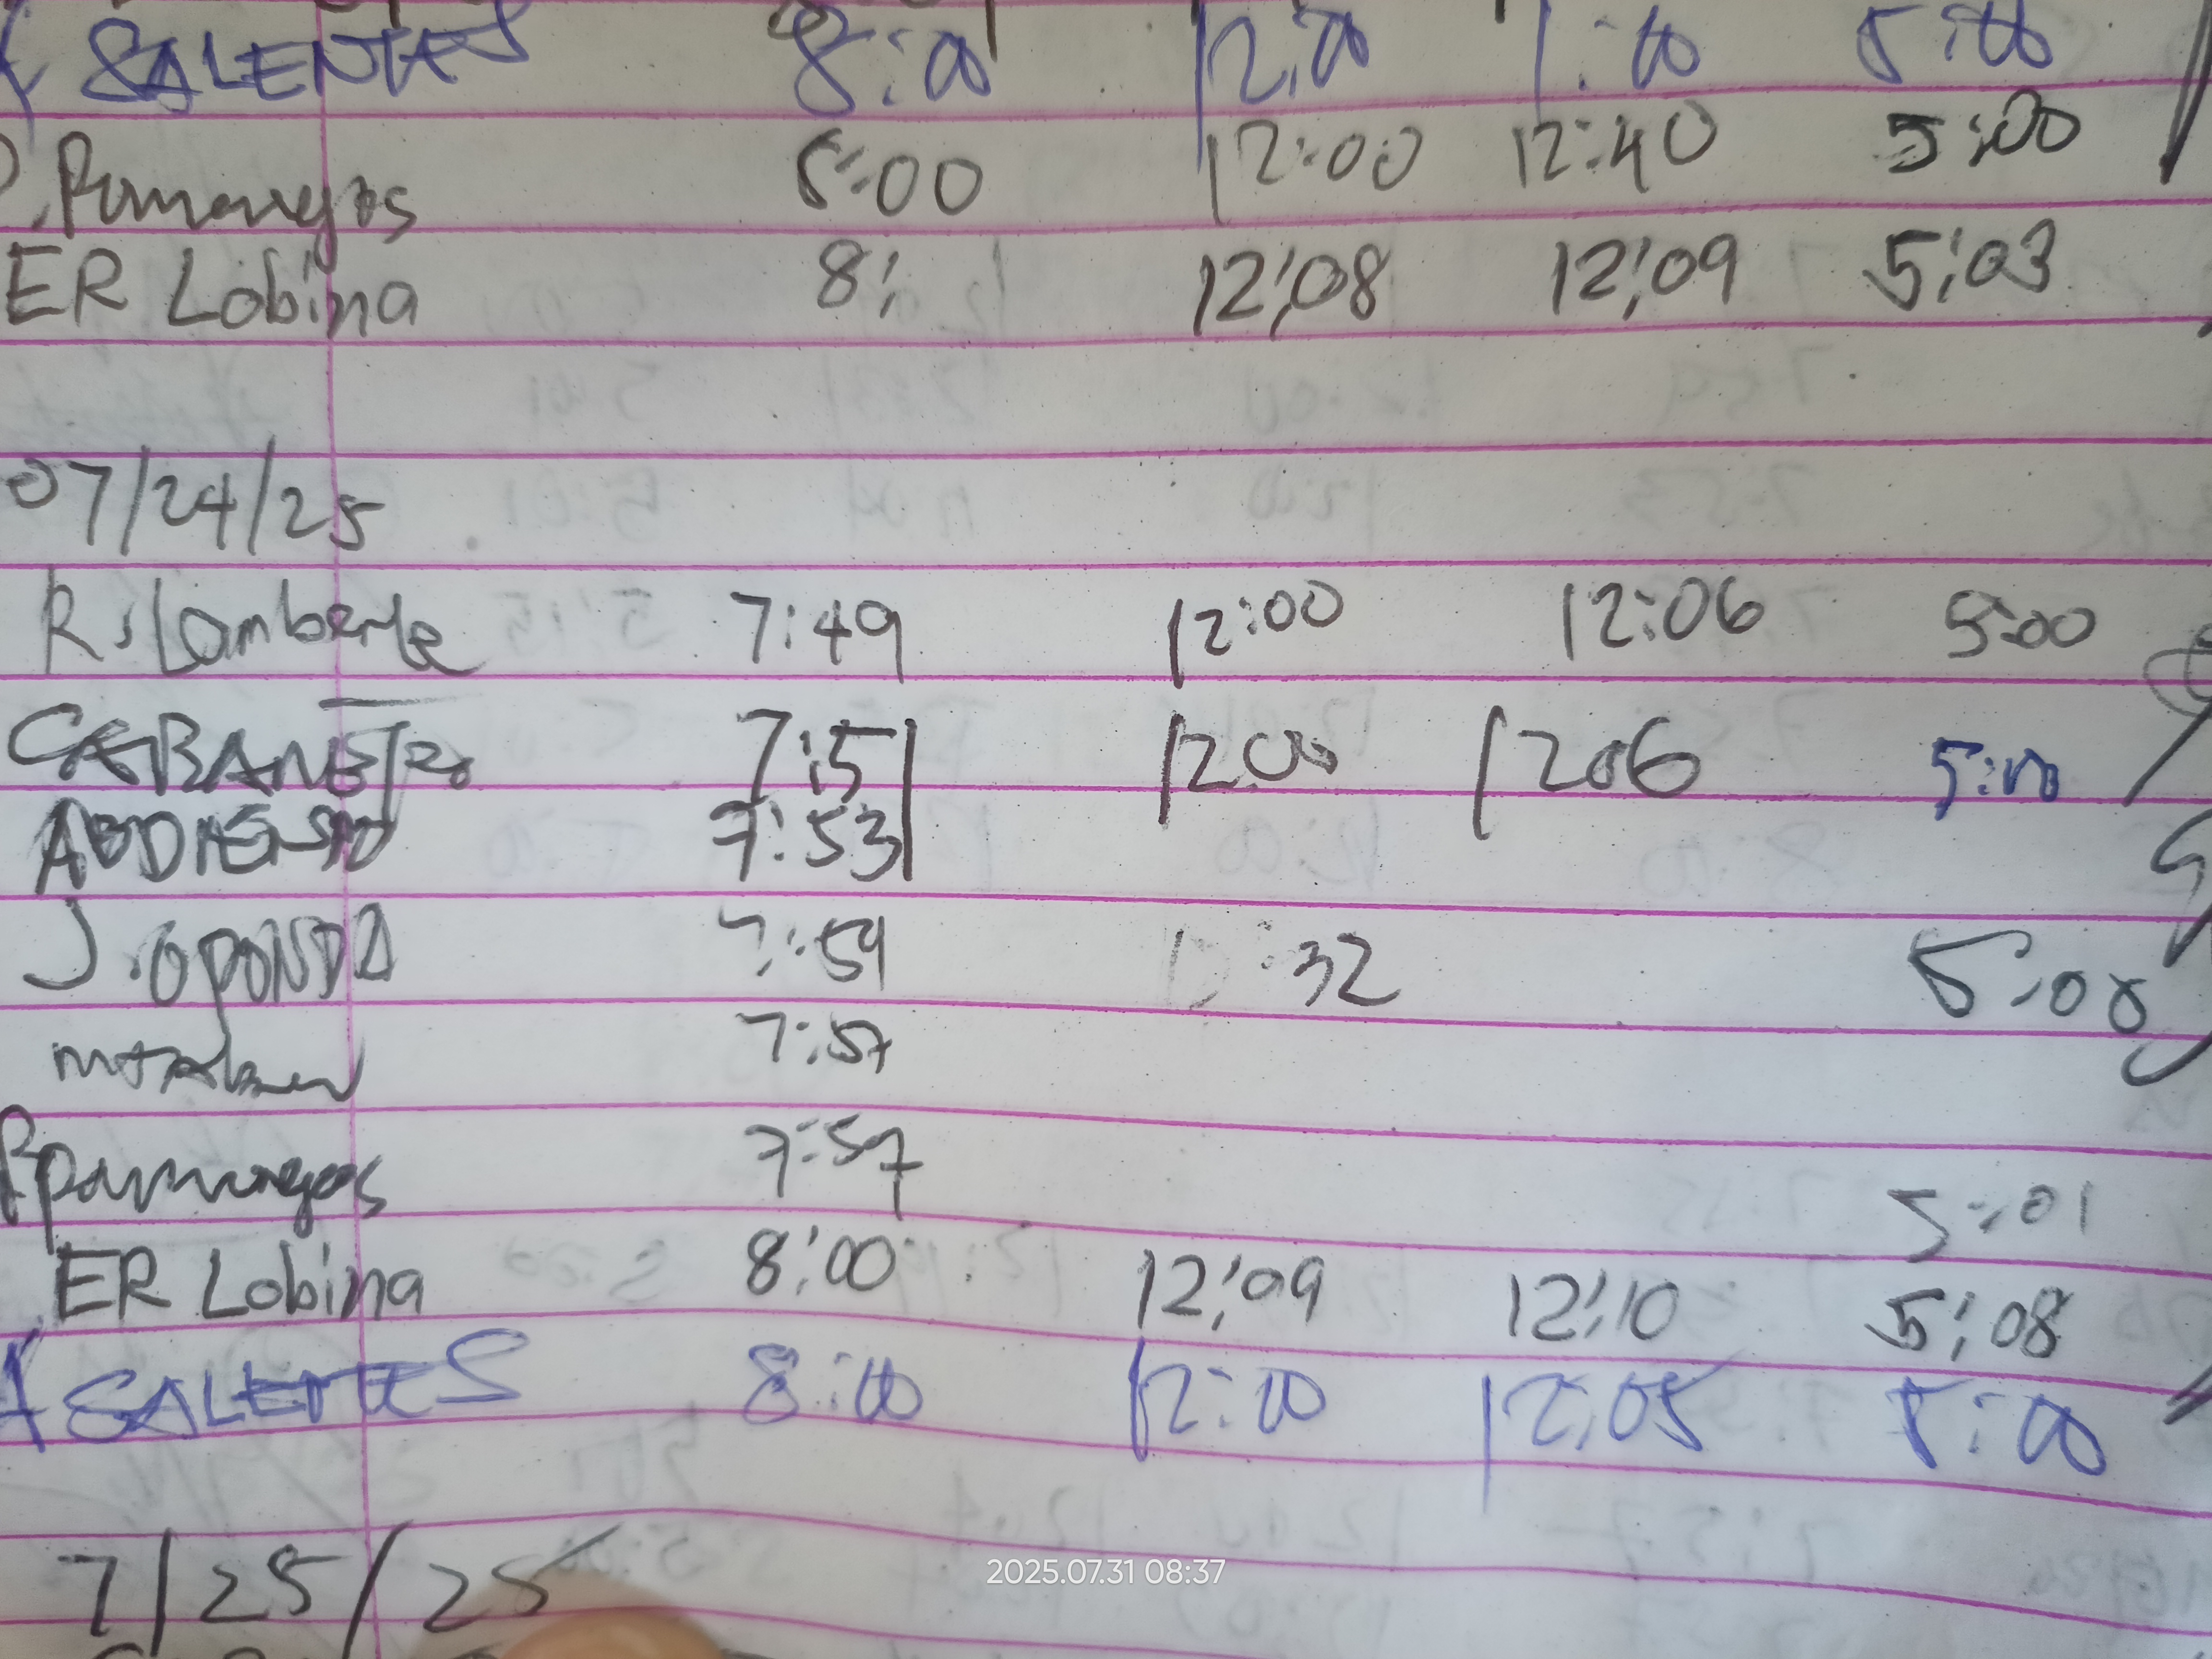 SALENTES 8:00 12:00 1:00 5:00
Pamangos 8:00 12:00 12:40 5:00
ER Lobina 8: 12:08 12:09 5:03
07/24/25
R. Lamberte 7:49 12:00 12:06 5:00
CABANERO 7:51 12:00 1206 5:00
7:53
J. OPONDA 7:59 :32 5:08
7:57
Ppamangos 7:57 5:01
ER Lobina 8:00 12:09 12:10 5:08
SALENTES 8:00 12:00 12:05 5:00
7/25/25
2025.07.31 08:37